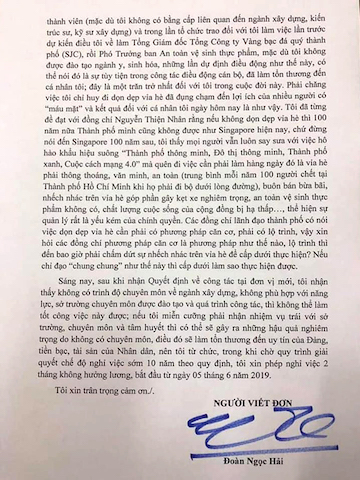 thành viên (mặc dù tôi không có bằng cấp liên quan đến ngành xây dựng, kiến
trúc sư, kỹ sư xây dựng) và trong lần tổ chức trao đổi với tôi làm việc lần trước
dự kiến điều tôi về làm Tổng Giám đốc Tổng Công ty Vàng bạc đá quý thành phố
(SJC), rồi Phó Trưởng ban An toàn vệ sinh thực phẩm, mặc dù tôi không
được đào tạo ngành y, sinh hóa, những lần dự định điều động như thế này, có
thể nói đó là sự tùy tiện trong công tác điều động cán bộ, đã làm tổn thương đến
cá nhân tôi; đây là một trăn trở nhất đối với tôi trong cuộc đời này. Phải chăng
việc tôi chỉ huy đi dọn dẹp vỉa hè đã đụng chạm đến lợi ích của nhiều người có
"máu mặt" và kết quả đối với cá nhân tôi ngày hôm nay là như vậy. Tôi đã từng
đề đạt với đồng chí Nguyễn Thiện Nhân rằng nếu không dọn dẹp vỉa hè thì 100
năm nữa Thành phố mình cũng không được như Singapore hiện nay, chứ đừng
nói đến Singapore 100 năm sau, tôi thấy mọi người vẫn luôn say sưa với việc hô
hào khẩu hiệu suông "Thành phố thông minh, Đô thị thông minh, Thành phố
xanh, Cuộc cách mạng 4.0" mà quên đi việc cần phải làm hàng ngày đó là vỉa hè
phải thông thoáng, văn minh, an toàn (trung bình mỗi năm 100 người chết tại
Thành phố Hồ Chí Minh khi họ phải đi bộ dưới lòng đường), buôn bán bừa bãi,
nhếch nhác trên vỉa hè góp phần gây kẹt xe nghiêm trọng, an toàn vệ sinh thực
phẩm không có, chất lượng cuộc sống của cộng đồng bị hạ thấp…, thể hiện sự
quản lý rất là yếu kém của chính quyền. Các đồng chí lãnh đạo thành phố có nói
việc dọn dẹp vỉa hè cần phải có phương pháp căn cơ, phải có lộ trình, vậy xin
hỏi các đồng chí phương pháp căn cơ là phương pháp như thế nào, lộ trình thì
đến bao giờ phải chấm dứt sự nhếch nhác trên vỉa hè để cấp dưới thực hiện? Nếu
chỉ đạo "chung chung" như thế này thì cấp dưới làm sao thực hiện được.
Sáng nay, sau khi nhận Quyết định về công tác tại đơn vị mới, tôi nhận
thấy không có trình độ chuyên môn về ngành xây dựng, không phù hợp với năng
lực, sở trường chuyên môn được đào tạo và quá trình công tác, thì không thể làm
tốt công việc này được; nếu tôi miễn cưỡng phải nhận nhiệm vụ trái với sở
trường, chuyên môn và tâm huyết thì có thể sẽ gây ra những hậu quả nghiêm
trọng do không có chuyên môn, điều đó sẽ làm tổn thương đến uy tín của Đảng,
tiền bạc, tài sản của Nhân dân, nên tôi từ chức, trong khi chờ quy trình giải
quyết chế độ nghỉ việc sớm 10 năm theo quy định, tôi xin phép nghỉ việc 2
tháng không hưởng lương, bắt đầu từ ngày 05 tháng 6 năm 2019.
Tôi xin trân trọng cảm ơn./.
NGƯỜI VIẾT ĐƠN
Đoàn Ngọc Hải